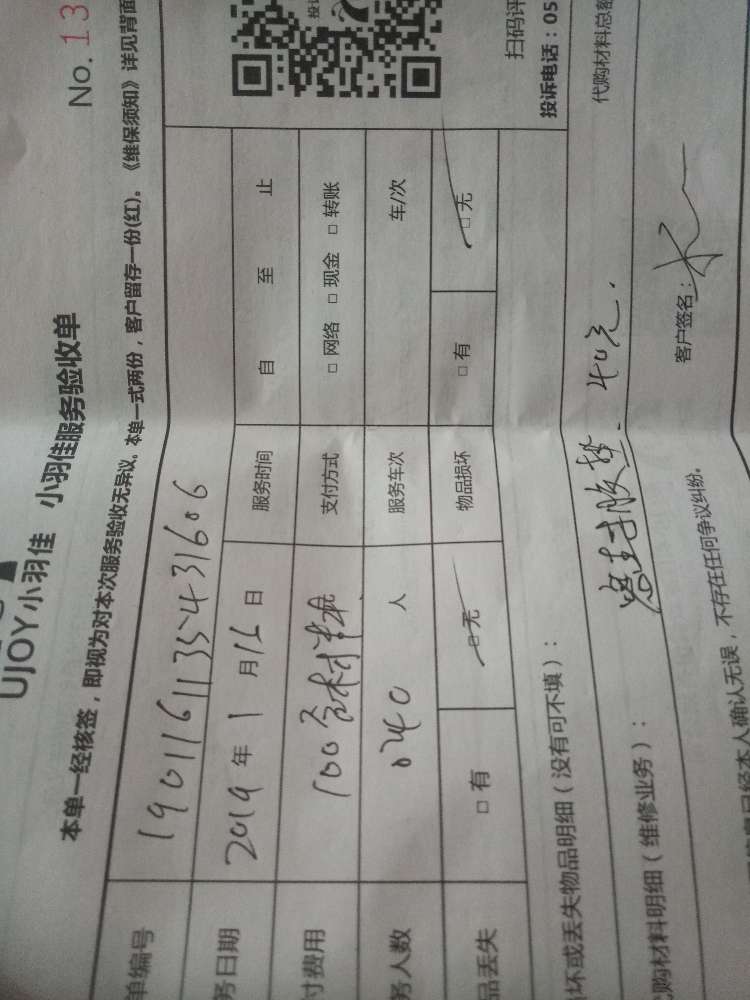 No. 13
UJOY小羽佳 小羽佳服务验收单
本单一经核签，即视为对本次服务验收无异议。本单一式两份，客户留存一份(红)。《维保须知》详见背面
单编号 190116113543 1606
务日期 2019 年 1 月 16 日 服务时间 自 至 止
付费用 100 含材料 支付方式 □ 网络 □ 现金 □ 转账
务人数 人 服务车次 车/次
品丢失 □ 有 □ 无 物品损坏 □ 有 □ 无
扫码评
投诉电话：05
坏或丢失物品明细（没有可不填）：
购材料明细（维修业务）： 密封胶垫. 40元. 代购材料总额
已经本人确认无误，不存在任何争议纠纷。 客户签名：